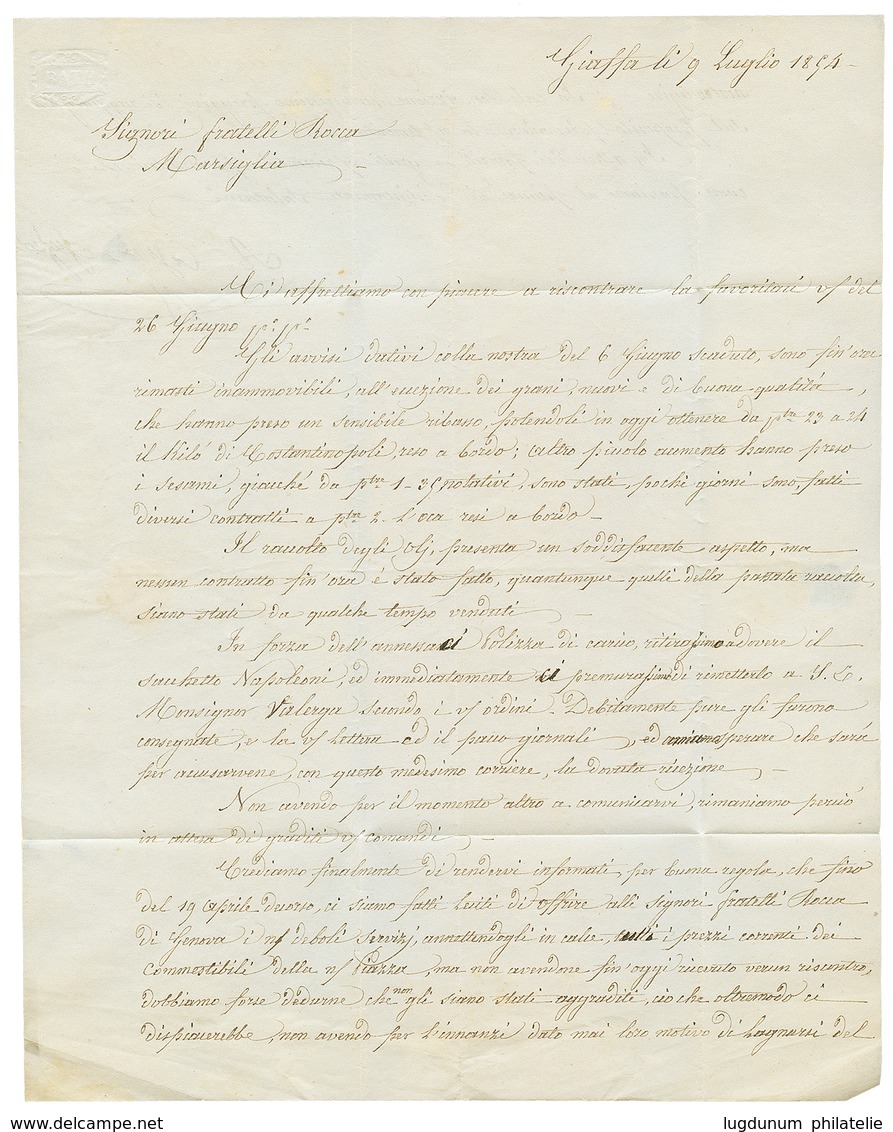 BATH
Giaffa li 9 Luglio 1854
Signori fratelli Rocca
Marsiglia
Mi affrettiamo con piacere a riscontrare la favoritaci v/ del
26 Giugno p.º p.º
Gli avvisi dativi colla nostra del 6 Giugno scaduto, sono fin'ora
rimasti inammovibili, all'eccezione dei grani, nuovi e di buona qualità,
che hanno preso un sensibile ribasso, potendoli in oggi ottenere da ptre 23 a 24
il Kiló di Costantinopoli, reso a bordo; altro piccolo aumento hanno preso
i sesami, giacché da ptre 1-35 notativi, sono stati, pochi giorni sono, fatti
diversi contratti a ptre 2. l'oca resi a bordo
Il raccolto degli Olj, presenta un soddisfacente aspetto, ma
nessun contratto fin'ora é stato fatto, quantunque quelli della passata raccolta,
siano stati da qualche tempo venduti
In forza dell'annessaci Polizza di carico, ritirassimo a dovere il
sacchetto Napoleoni, ed immediatamente ci premurassimo di rimetterlo a S. E.
Monsignor Valerga secondo i v/ ordini. Debitamente pure gli furono
consegnate, e la v/ lettera ed il pacco giornali, ed amiamo sperare che sarà
per accusarvene, con questo medesimo corriere, la dovuta ricezione
Non avendo per il momento altro a comunicarvi, rimaniamo perció
in attesa di graditi v/ comandi
Crediamo finalmente di rendervi informati, per buona regola, che fino
del 19 Aprile decorso, ci siamo fatti lesiti di offrire alli signori fratelli Rocca
di Genova i n/ deboli servizj, annottendogli in calce tutti i prezzi correnti dei
Commestibili della n/ Piazza, ma non avendone fin'oggi ricevuto verun riscontro,
dobbiamo forse dedurne che non gli siano stati aggraditi, ció che oltremodo ci
dispiacerebbe, non avendo per l'innanzi dato mai loro motivo di lagnarsi del
www.delcampe.net
lugdunum philatelie